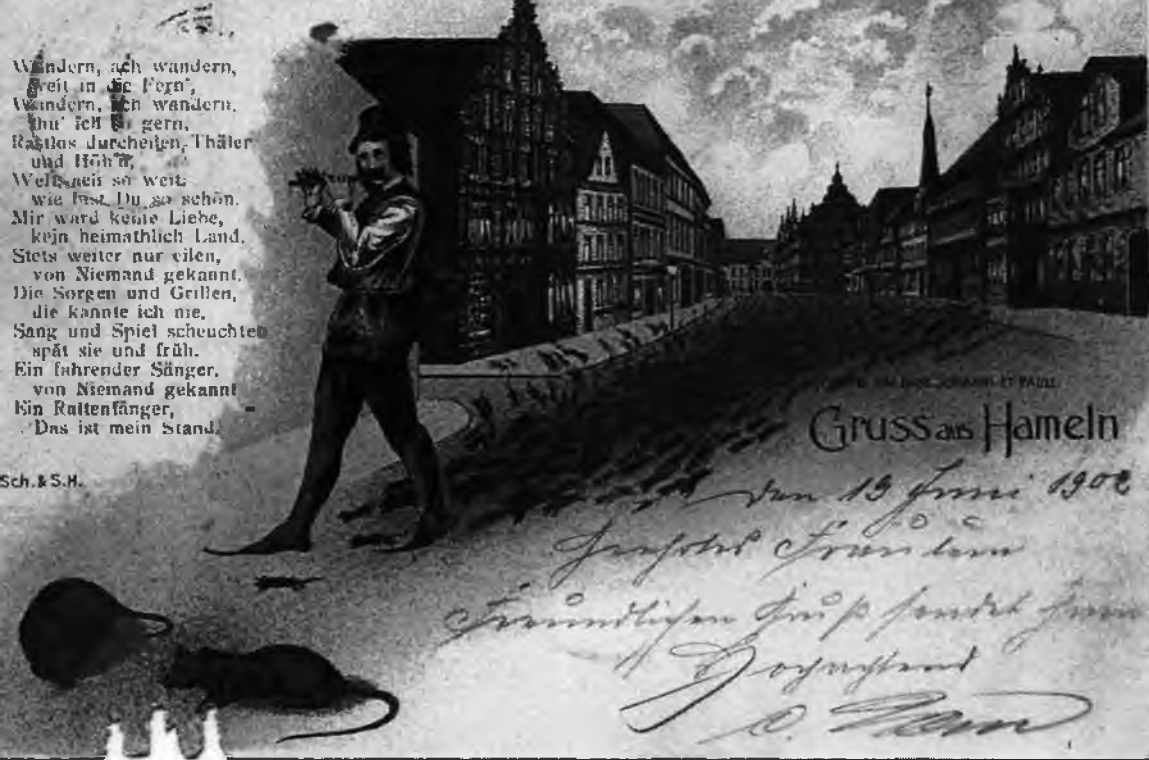 Wandern, ach wandern,
weit in die Fern',
Wandern, ach wandern,
thu' ich so gern.
Rastlos durcheilen, Thäler
und Höh'n,
Welt,
wie bist Du so schön.
Mir ward keine Liebe,
kein heimathlich Land.
Stets weiter nur eilen,
von Niemand gekannt.
Die Sorgen und Grillen,
die kannte ich nie.
Sang und Spiel scheuchten
spät sie und früh.
Ein fahrender Sänger,
von Niemand gekannt
Ein Rattenfänger,
Das ist mein Stand.
Sch. & S. H.
Gruss aus Hameln
den 19 Juni 1902
Geehrtes Fräulein
Freundlichen Gruß sendet Ihnen
Hochachtend